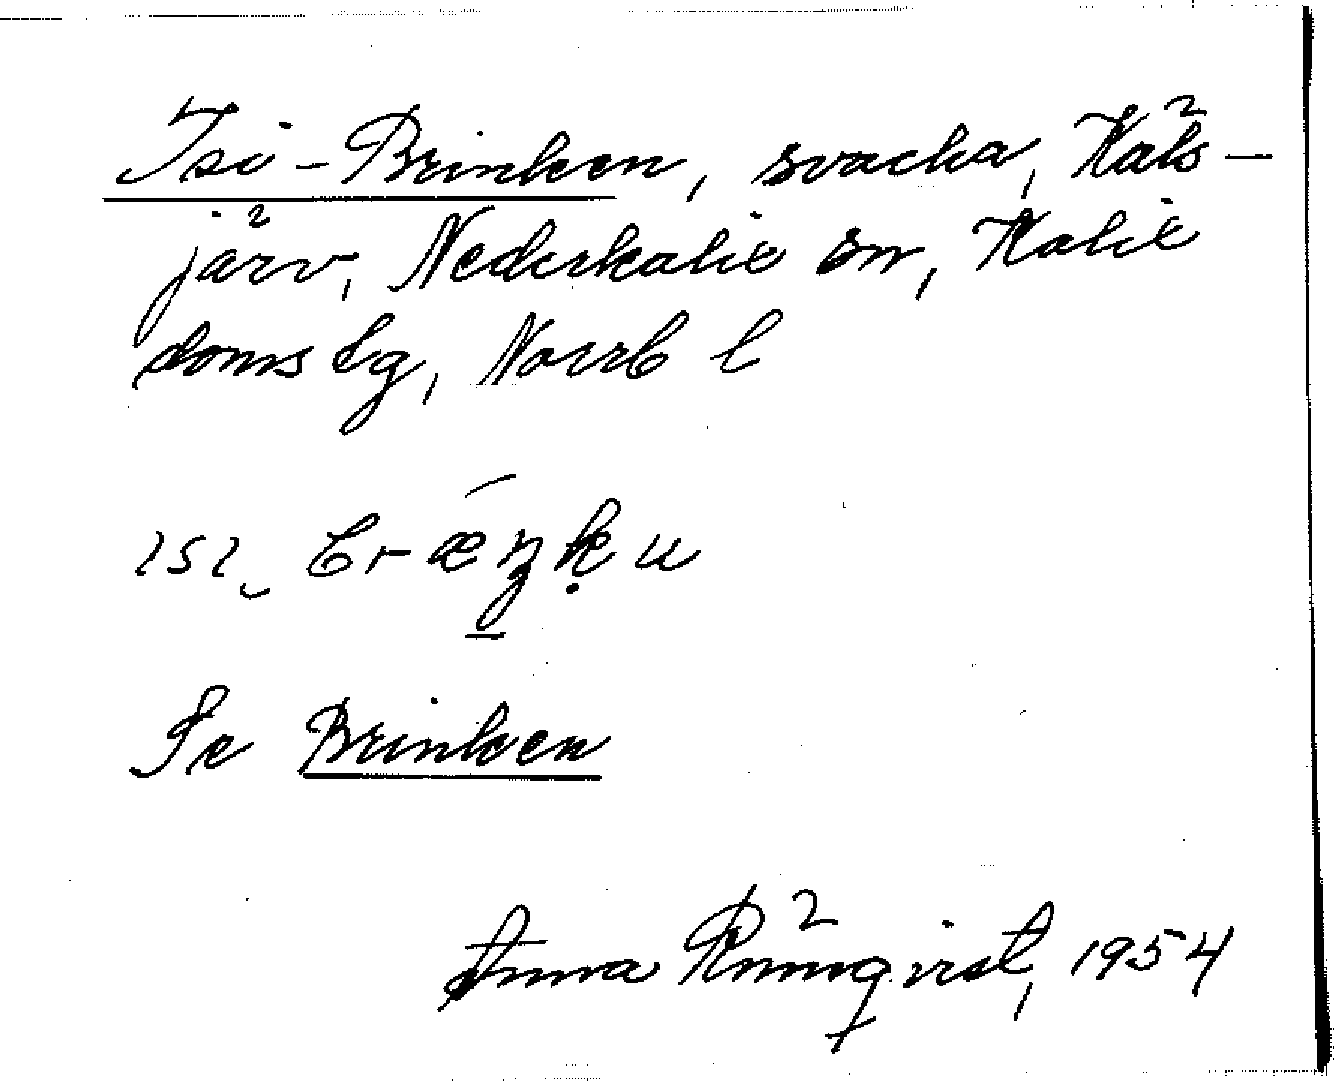 Isi-Brinken, svacka, Räktfors-
järv, Nederkalix sn, Kalix
doms lg, Norrb l
ɪsɪ‿ bræŋku
Se Brinken
Anna Rönnqvist, 1954